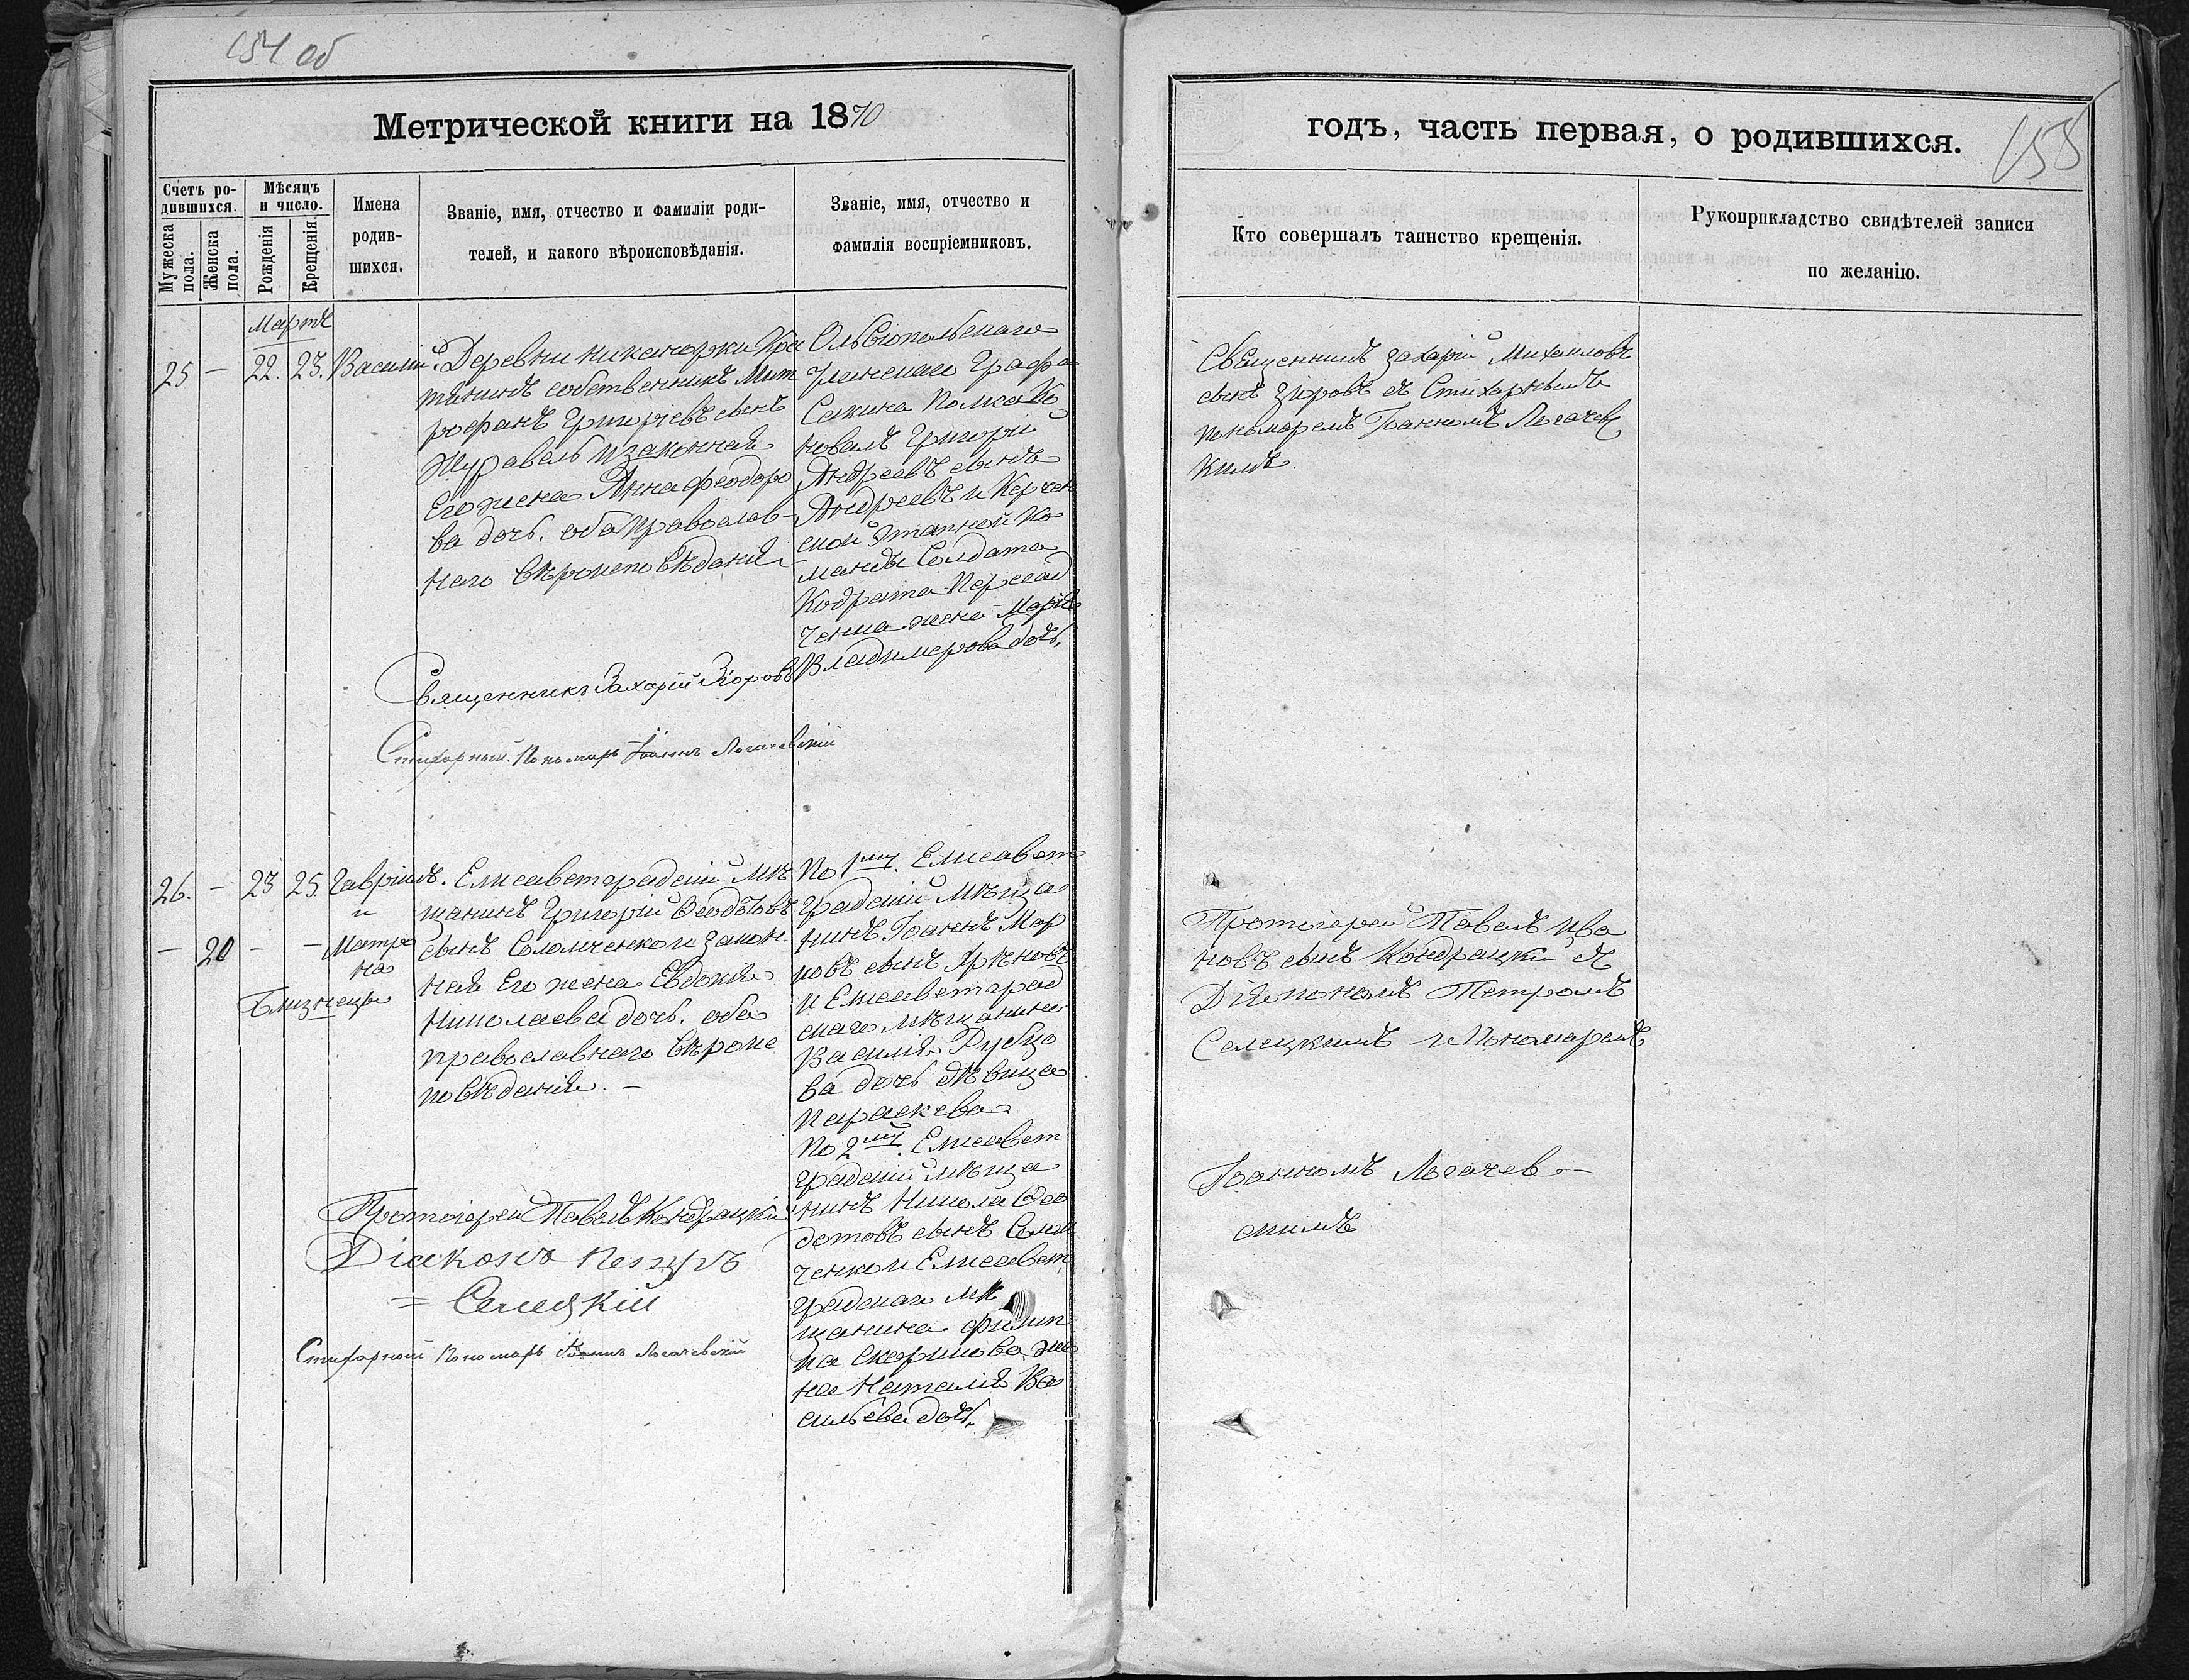 154 об
Метрической книги на 1870
годъ, часть первая, о родившихся.
155
Счетъ ро-
дившихся.
Мужеска
пола.
Женска
пола.
Мѣсяцъ
и число.
Рожденія
Крещенія
Имена
родив-
шихся.
Званіе, имя, отчество и фамиліи роди-
телей, и какого вѣроисповѣданія.
Званіе, имя, отчество и
фамилія воспріемниковъ.
Кто совершалъ таинство крещенія.
Рукоприкладство свидѣтелей записи
по желанію.
Мартъ
25 — 22. 23. Василій.
Деревни Никанорки Кре
тянинъ собственникъ Мит
рофанъ Григоріевъ сынъ
Журавель и законная
Его жена Анна Феодоро
ва дочь. оба православ-
наго вѣроисповѣданія
Ольвіопольскаго
Уланскаго Графа
Сакина Полка Ко
новалъ Григорій
Андреевъ сынъ
Андреевъ и Керчен
ской Этапной Ко
манды Солдата
Кодрата Пересад
ченка жена Марія
Владимерова дочь.
Священникъ Захарій Михаиловъ
сынъ Зіоровъ съ Стихарнымъ
пономаремъ Іоанномъ Логачевс
кимъ.
Священникъ Захарій Зіоровъ
Стихарный Пономарь Іоаннъ Логачевскій
26. — 23 25 Гавріилъ.
и
— 20 — — Матро
на
Близнецы
Елисаветградскій Мѣ
щанинъ Григорій Ѳеодотовъ
сынъ Соломченко и закон
ная Его жена Евдокія
Николаева дочь. оба
православнаго вѣроис
повѣданія. —
По 1му. Елисавет
градскій Мѣща
нинъ Іоаннъ Мар
ковъ сынъ Хрѣновъ
и Елисаветград
скаго мѣщанина
Василія Рубцо
ва дочь дѣвица
Параскева
По 2му. Елисавет
градскій мѣща
нинъ Никола Ѳео
дотовъ сынъ Солом
ченко и Елисавет
градскаго мѣ
щанина Филип
па Скорикова же
на Наталія Ва
сильева дочь.
Протоіерей Павелъ Ива
новъ сынъ Кондрацкій съ
Діякономъ Петромъ
Селецкимъ и Пономаремъ
Іоанномъ Логачев—
скимъ
Протоіерей Павелъ Кондрацкій
Діаконъ Петръ
= Селецкій
Стихарный Пономарь Іоаннъ Логачевскій